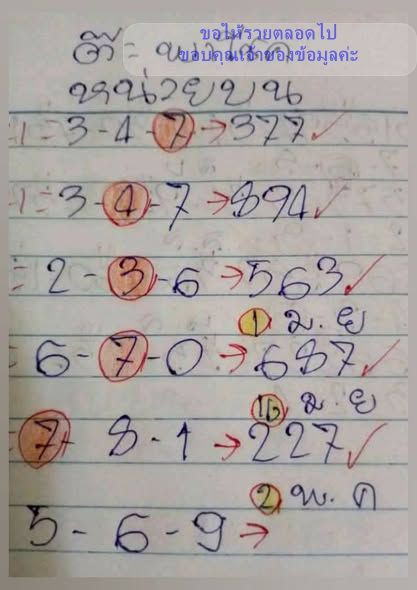 ขอให้รวยตลอดไป
ขอบคุณเจ้าของข้อมูลค่ะ
หน่วยบน
3-4-7→377✓
3-4-7→894✓
2-3-6→563✓
1 ม.ย
6-7-0→687✓
16 ม.ย
7-8-1→227✓
2 พ.ค
5-6-9→